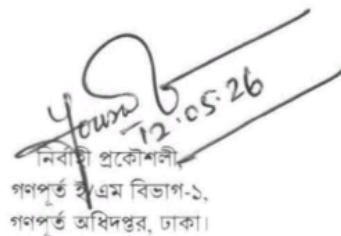 12.05.26
নির্বাহী প্রকৌশলী,
গণপূর্ত ই/এম বিভাগ-১,
গণপূর্ত অধিদপ্তর, ঢাকা।